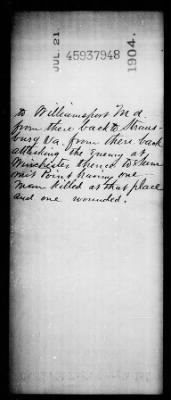 JUL. 21.
45937948
1904.
to Williamsport Md.
from there back to Stras-
burg Va. from there back
attacking the Enemy at
Winchester thence to Sum
mit Point having one
man killed at that place
and one wounded.